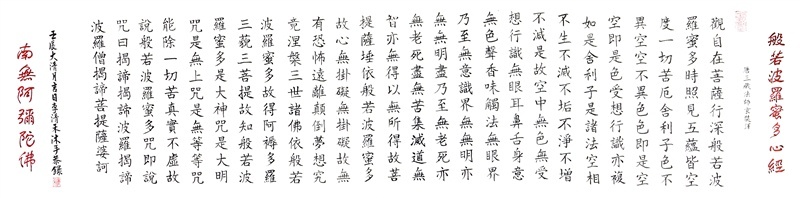 般若波羅蜜多心經
唐三藏法師玄奘譯
觀自在菩薩行深般若波
羅蜜多時照見五蘊皆空
度一切苦厄舍利子色不
異空空不異色色即是空
空即是色受想行識亦複
如是舍利子是諸法空相
不生不滅不垢不淨不增
不減是故空中無色無受
想行識無眼耳鼻舌身意
無色聲香味觸法無眼界
乃至無意識界無無明亦
無無明盡乃至無老死亦
無老死盡無苦集滅道無
智亦無得以無所得故菩
提薩埵依般若波羅蜜多
故心無掛礙無掛礙故無
有恐怖遠離顛倒夢想究
竟涅槃三世諸佛依般若
波羅蜜多故得阿耨多羅
三藐三菩提故知般若波
羅蜜多是大神咒是大明
咒是無上咒是無等等咒
能除一切苦真實不虛故
說般若波羅蜜多咒即說
咒曰揭諦揭諦波羅揭諦
波羅僧揭諦菩提薩婆訶
壬辰沐手恭錄
南無阿彌陀佛